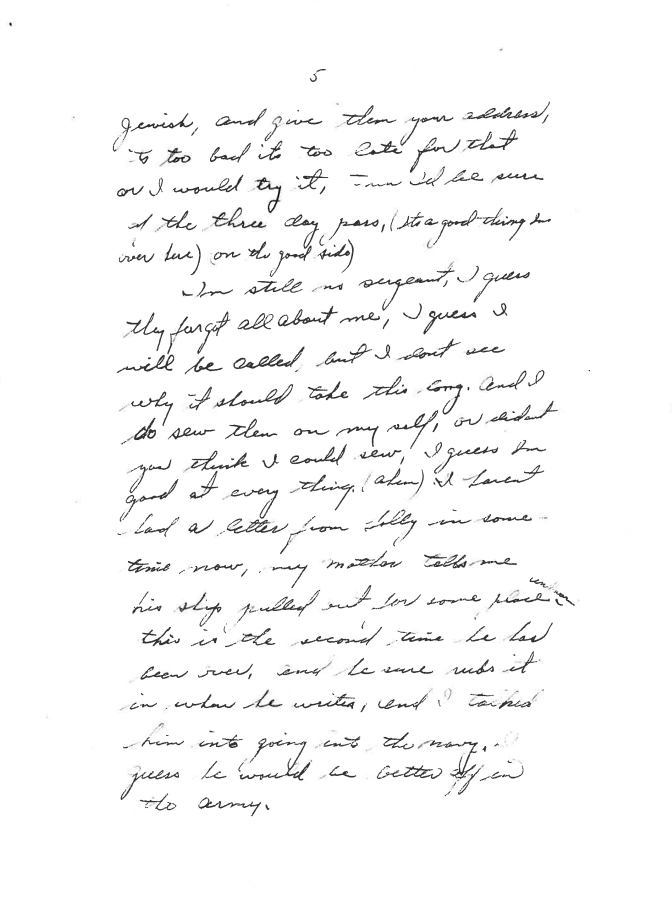 5
Jewish, and give them your address,
its too bad its too late for that
or I would try it, I'd be sure
of the three day pass, (its a good thing Im
over here) on the good side)
Im still no sergeant, I guess
they forgot all about me, I guess I
will be called, but I dont see
why it should take this long. And I
do sew them on my self, or didnt
you think I could sew, I guess Im
good at every thing. (ahem) I havent
had a letter from in some-
time now, my mother tells me
his ship pulled out for some place
this is the second time he has
been over, and he sure rubs it
in when he writes, and I talked
him into going into the navy. I
guess he would be better off in
the army.